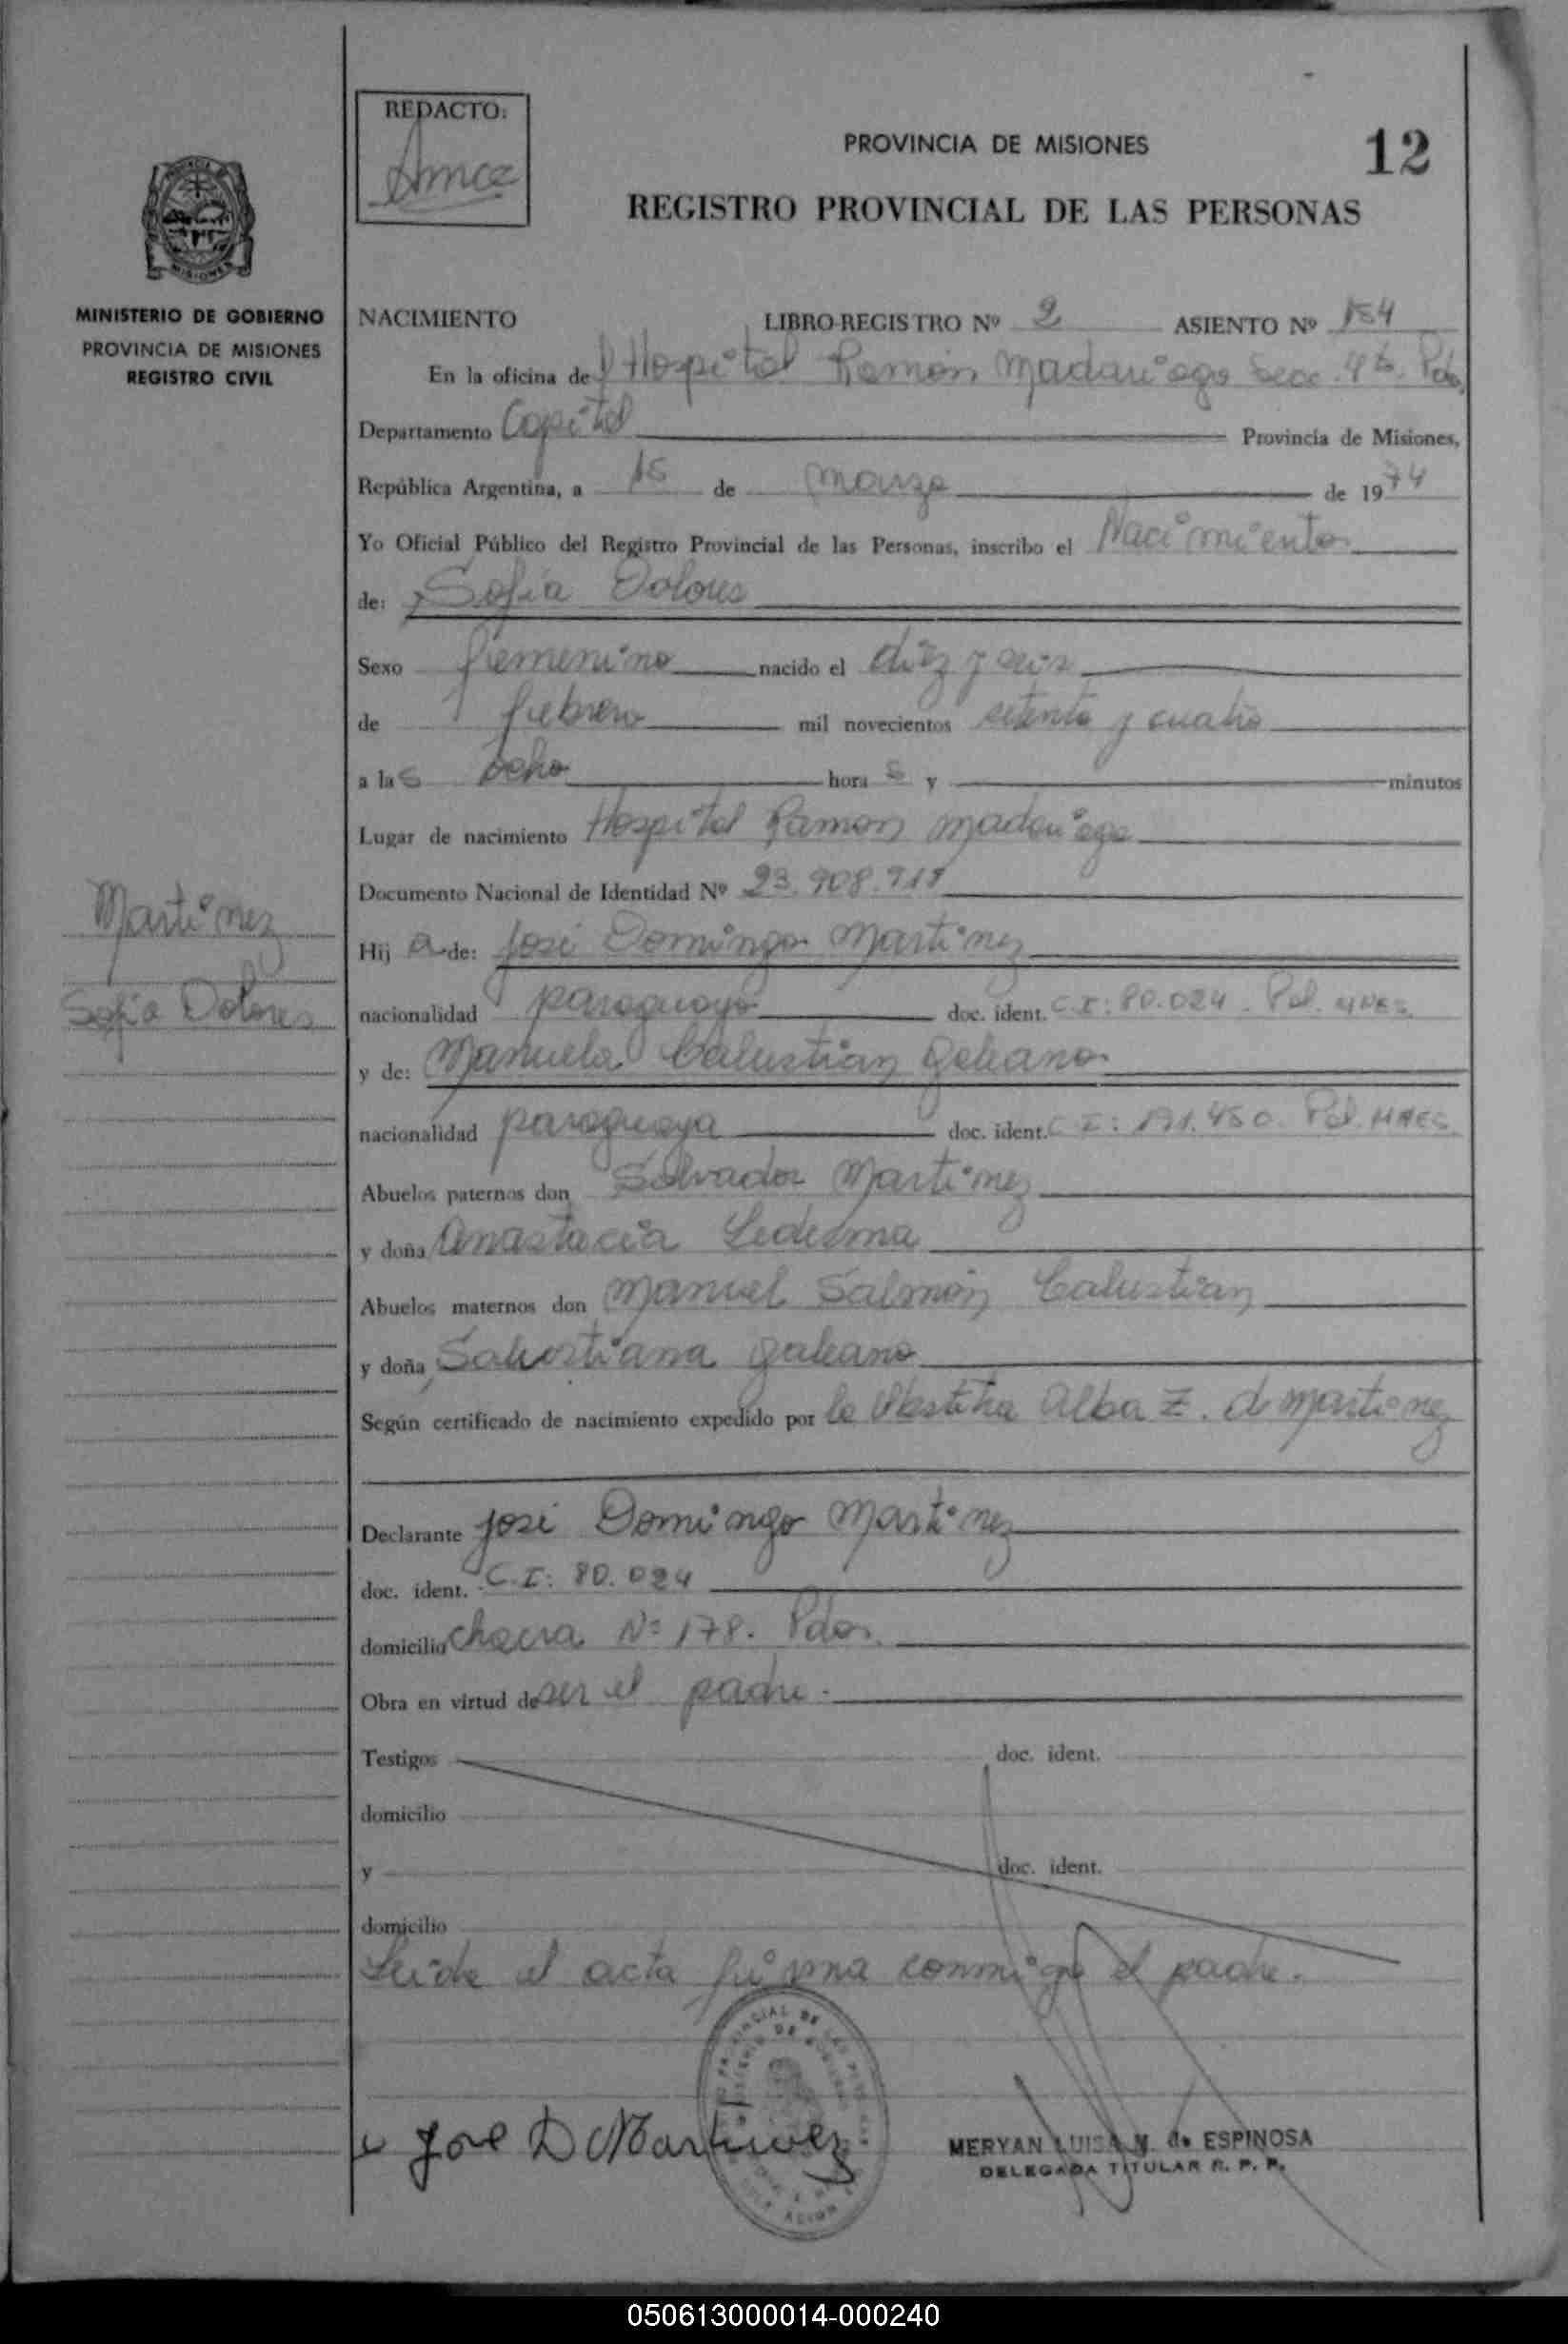 REDACTO:
PROVINCIA DE MISIONES
12
REGISTRO PROVINCIAL DE LAS PERSONAS
MINISTERIO DE GOBIERNO
PROVINCIA DE MISIONES
REGISTRO CIVIL
NACIMIENTO LIBRO-REGISTRO Nº 2 ASIENTO Nº 154
En la oficina del Hospital Ramón Madariaga Secc. 4ta. Pdas,
Departamento Capital Provincia de Misiones,
República Argentina, a 15 de marzo de 1974
Yo Oficial Público del Registro Provincial de las Personas, inscribo el Nacimiento
de: Sofia Dolores
Sexo femenino nacido el diez y seis
de febrero mil novecientos setenta y cuatro
a las ocho horas y minutos
Lugar de nacimiento Hospital Ramon Madariaga
Documento Nacional de Identidad Nº 23.908.718
Martinez
Hija de: José Domingo Martinez
Sofia Dolores
nacionalidad paraguayo doc. ident. C.I: 80.024. Pol. MNES.
y de: Manuela Calustian Galeano
nacionalidad paraguaya doc. ident. C I: 191.450. Pol. MNES
Abuelos paternos don Salvador Martinez
y doña Anastacia Ledesma
Abuelos maternos don Manuel Salmón Calustian
y doña Salustiana Galeano
Según certificado de nacimiento expedido por la Obstetra Alba Z. d Martinez
Declarante José Domingo Martinez
doc. ident. C.I: 80.024
domicilio Chacra Nº 178. Pdas.
Obra en virtud de ser el padre.
Testigos doc. ident.
domicilio
y doc. ident.
domicilio
Leida el acta firma conmigo el padre.
Jose D Martinez
MERYAN LUISA M. de ESPINOSA
DELEGADA TITULAR R. P. P.
050613000014-000240